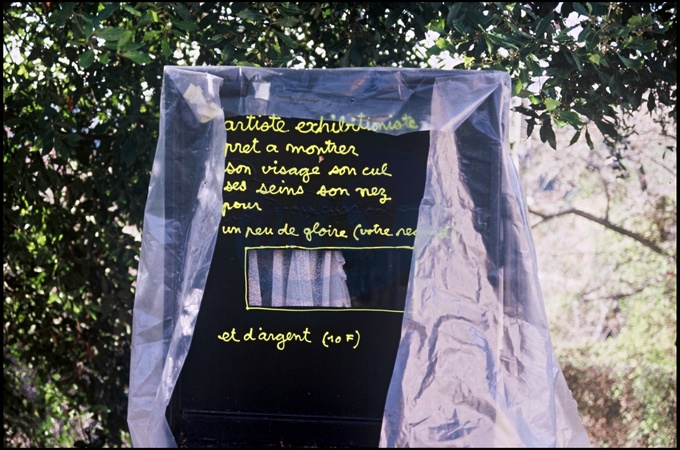 artiste exhibitioniste
pret a montrer
son visage son cul
ses seins son nez
pour
un peu de gloire (votre
et d'argent (10 F)